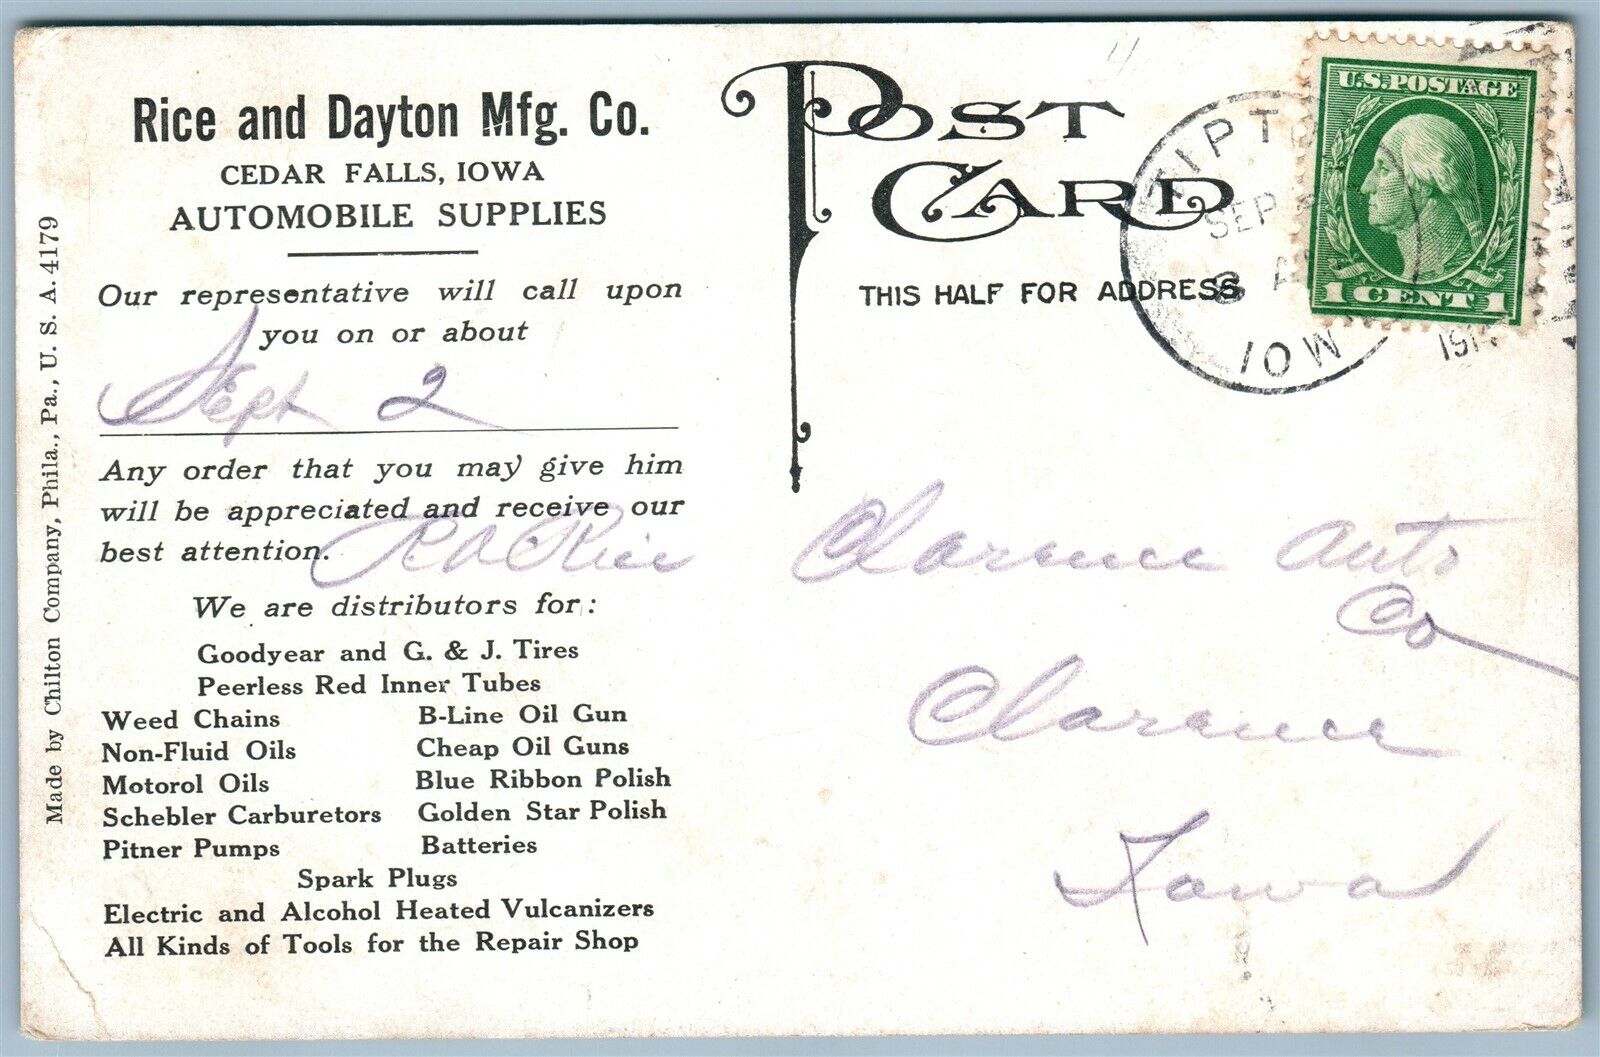 Rice and Dayton Mfg. Co.
CEDAR FALLS, IOWA
AUTOMOBILE SUPPLIES
Our representative will call upon
you on or about
Sept 2
Any order that you may give him
will be appreciated and receive our
best attention.
Rice
We are distributors for:
Goodyear and G. & J. Tires
Peerless Red Inner Tubes
Weed Chains
Non-Fluid Oils
Motorol Oils
Schebler Carburetors
Pitner Pumps
B-Line Oil Gun
Cheap Oil Guns
Blue Ribbon Polish
Golden Star Polish
Batteries
Spark Plugs
Electric and Alcohol Heated Vulcanizers
All Kinds of Tools for the Repair Shop
Made by Chilton Company, Phila., Pa., U. S. A. 4179
POST
CARD
THIS HALF FOR ADDRESS
U.S. POSTAGE
1 CENT 1
SEP
8 A
IOWA
Clarence Auto
Co
Clarence
Iowa